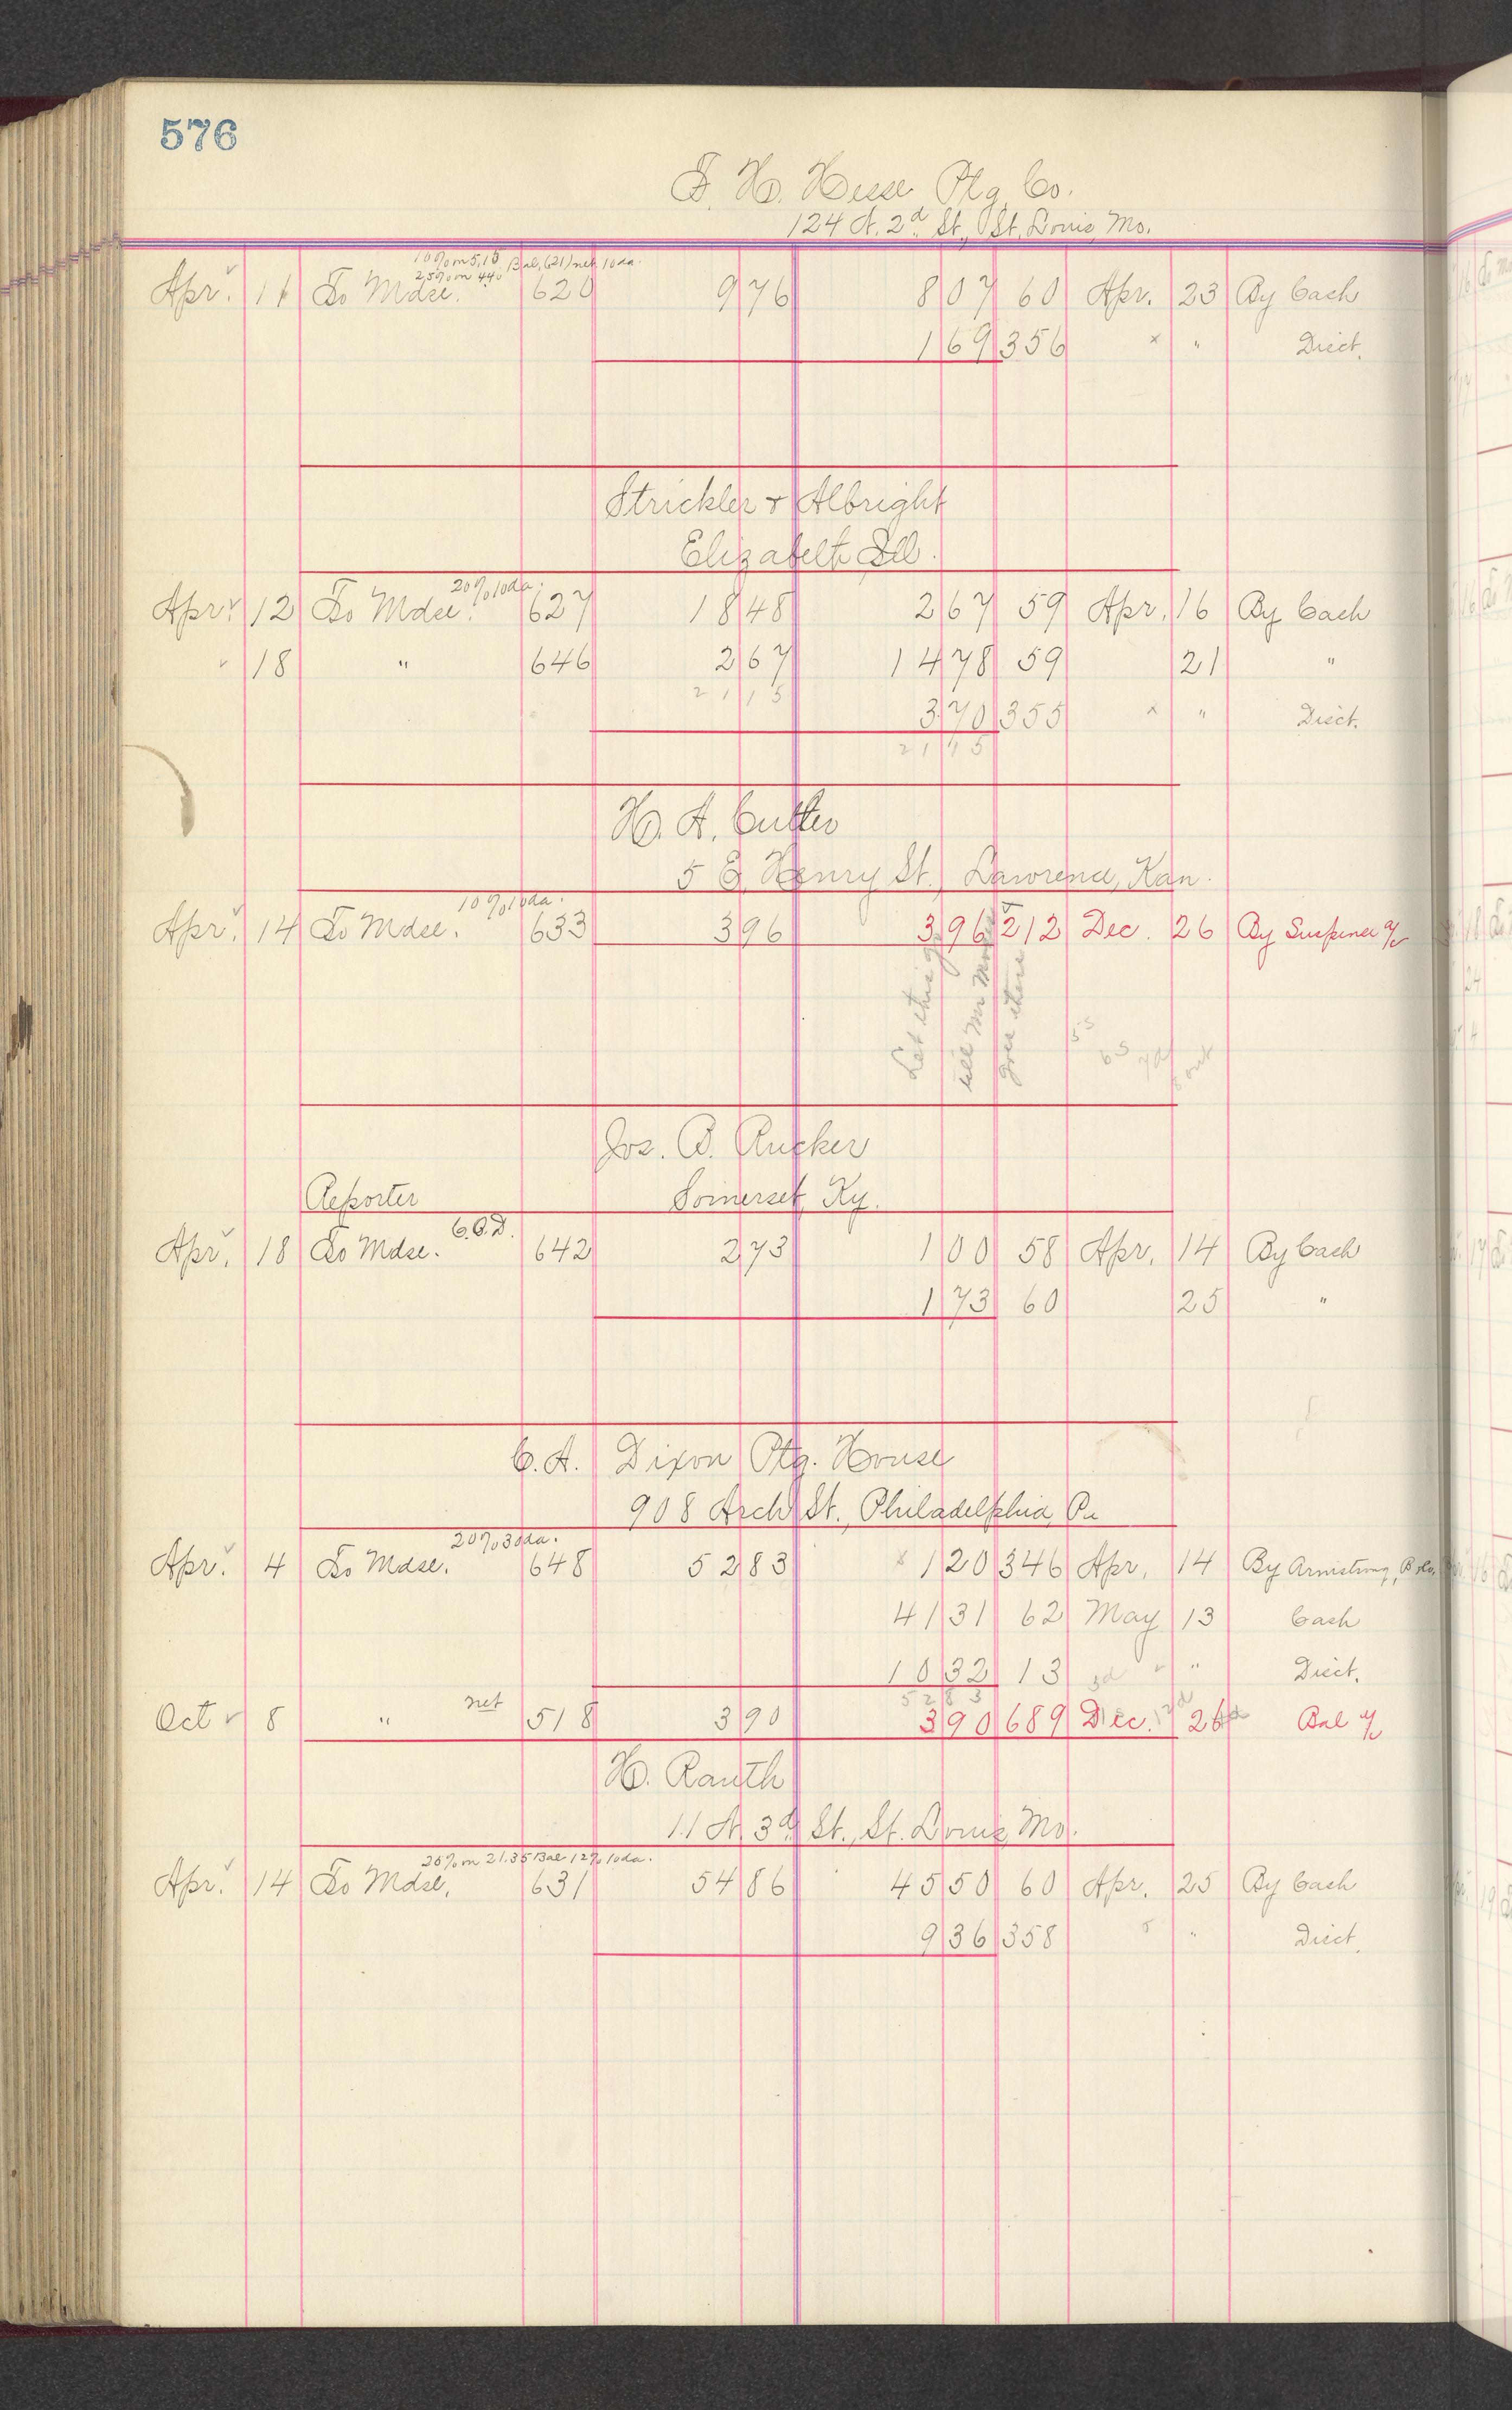 576
F. H. Hesse Ptg. Co.
124 N. 2d St., St. Louis, Mo.
10% on 5.15 Bal. (621) net 10 da.
25% on 440
Apr. 11 To Mdse. 620 9 76 8 07 60 Apr. 23 By Cash
1 69 356 x " Disct.
Strickler & Albright
Elizabeth Ill.
20% 10 da.
Apr. 12 To Mdse. 627 18 48 2 67 59 Apr. 16 By Cash
18 " 646 2 67 14 78 59 21 "
21 15
3 70 355 x " Disct.
21 15
H. A. Cutler
5 E. Henry St., Lawrence, Kan.
10% 10 da.
Apr. 14 To Mdse. 633 3 96 3 96 212 Dec. 26 By Suspense a/c
Let this go
till Mr
goes there
Jos. B. Rucker
Reporter Somerset, Ky.
C.O.D.
Apr. 18 To Mdse. 642 2 73 1 00 58 Apr. 14 By Cash
1 73 60 25 "
C. A. Dixon Ptg. House
908 Arch St., Philadelphia, Pa
20% 30 da.
Apr. 4 To Mdse. 648 52 83 x 1 20 346 Apr. 14 By Armstrong, B &Co.
41 31 62 May 13 Cash
10 32 13 " Disct.
52 83
Oct 8 " net 518 3 90 3 90 689 Dec. 26 Bal a/c
H. Rauth
11 N. 3d St., St. Louis, Mo.
20% on 21.35 Bal 12% 10 da.
Apr. 14 To Mdse. 631 54 86 45 50 60 Apr. 25 By Cash
9 36 358 " Disct.